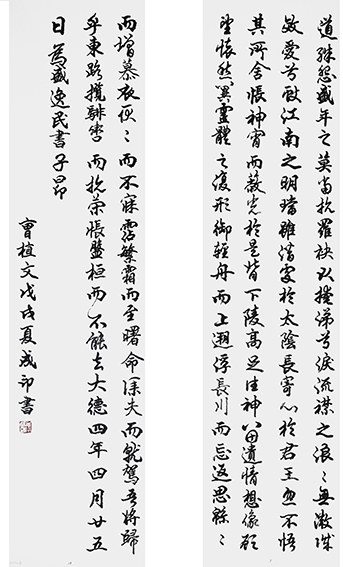 道殊怨盛年之莫當抗羅袂以掩涕兮淚流襟之浪〻無微
效愛兮獻江南之明璫雖潛處於太陰長寄心於君王忽不悟
其所舍悵神宵而蔽光於是背下陵高足往神留遺情想像顧
望懷愁冀靈體之復形御輕舟而上遡浮長川而忘返思緜〻
而增慕夜耿〻而不寐霑繁霜而至曙命僕夫而就駕吾將歸
乎東路攬騑轡而抗策悵盤桓而不能去大德四年四月廿五
日為盛逸民書子昂
曹植文戊戌夏成印書